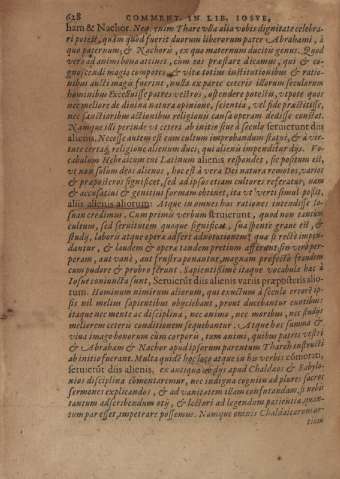 628 COMMENT. IN LIB. IOSVE,
ham & Nachor. Neq; enim Thare vlla alia vobis dignitate celebra-
ri potest, quàm quod fuerit duorum liberorum pater: Abrahami, à
quo paternum; & Nachoris, ex quo maternum ducitis genus. Quod
vero ad animi bona attinet, cum eos præstare dicamus, qui &
cognoscendi magis compotes & vitæ totius institutionibus & ratio-
nibus aucti magis fuerint, nulla ex parte cæteris illorum seculorum
hominibus Excelluisse patres vestros, ostendere potestis, vtpote qui
nec meliore de diuina natura opinione, scientia, vel fide præstitisse,
nec sanctioribus actionibus religioni causa operam dedisse constat.
Namque illi perinde vt cæteri ab initio siue à seculo seruierunt diis
alienis. Necesse autem est eum cultum improbandum statui, & à vir-
tute certaq; religione alienum duci, qui alienis impenditur diis. Vo-
cabulum Hebraicum cui Latinum alienis respondet, sic positum est,
vt non solum deos alienos, hoc est à vera Dei natura remotos, varios
& præposteros significet, sed ad ipsos etiam cultores referatur, eam
& accusatiui & genitiui formam obtinet, ita vt verti simul possit,
aliis alienis aliorum: Atque in omnes has rationes intendisse Io-
suan credimus. Cum primùm verbum seruierunt, quod non tantùm
cultum, sed seruitutem quoque significat, sua sponte graue est,
studij, laboris atque opera asserit
dantur, & laudem & opera tandem pretium afferunt: sin verò per-
peram, aut vanè, aut frustra ponantur, magnam profectò fraudem
cum pudore & probro ferunt. Sapientissimè itaque vocabula hæc à
Iosue coniuncta sunt, Seruierunt diis alienis variis præposteris alio-
rum. Hominum nimirum alienorum, qui exactum à seculo errore ip-
sis nil melius sapientibus obiiciebant, prout ducebantur cunctibus:
itaque nec mente ac disciplina, nec animo, nec moribus, nec studijs
meliorem cæteris conditionem sequebantur. Atque hæc summa &
viua imago bonorum cùm corporis, tum animi, quibus patres vestri
& Abraham & Nachor apud ipsorum parentum Tharæh instructi
ab initio fuerant. Multa quidē hoc loco atque in his verbis cōmota,
seruierūt diis alienis, ex antiqua eius apud Chaldæos & Babylo-
nios disciplina commentaremur, nec indigna cognitu ad plures sacros
sermones explicandos, & ad vanitatem illam confutandam, si vobis
tantum adscribendum otij, & lectori ad legendum patientiæ, quan-
tum par esset, impetrare possemus. Namque omnis Chaldaicorum ar-
tium